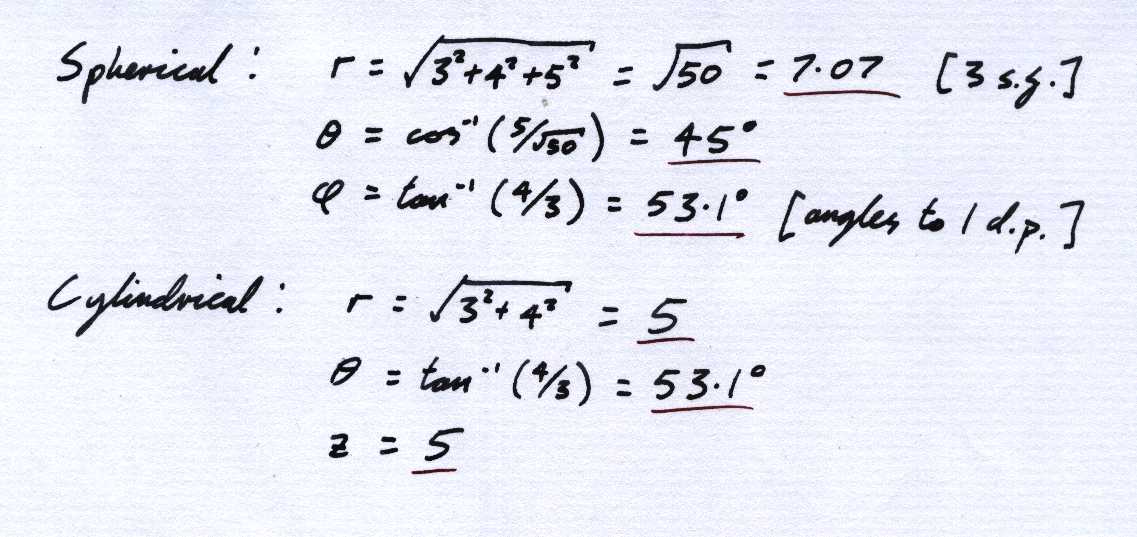 Spherical: r = √(3²+4²+5²) = √50 = 7·07 [3 s.f.]
θ = cos⁻¹ (5/√50) = 45°
φ = tan⁻¹ (4/3) = 53·1° [angles to 1 d.p.]
Cylindrical: r = √(3²+4²) = 5
θ = tan⁻¹ (4/3) = 53·1°
z = 5